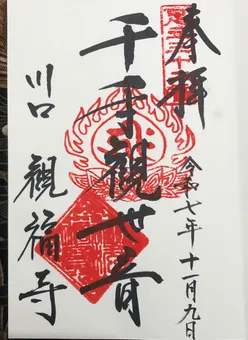 奉拝
令和七年十一月九日
千手觀世音
川口 観福寺